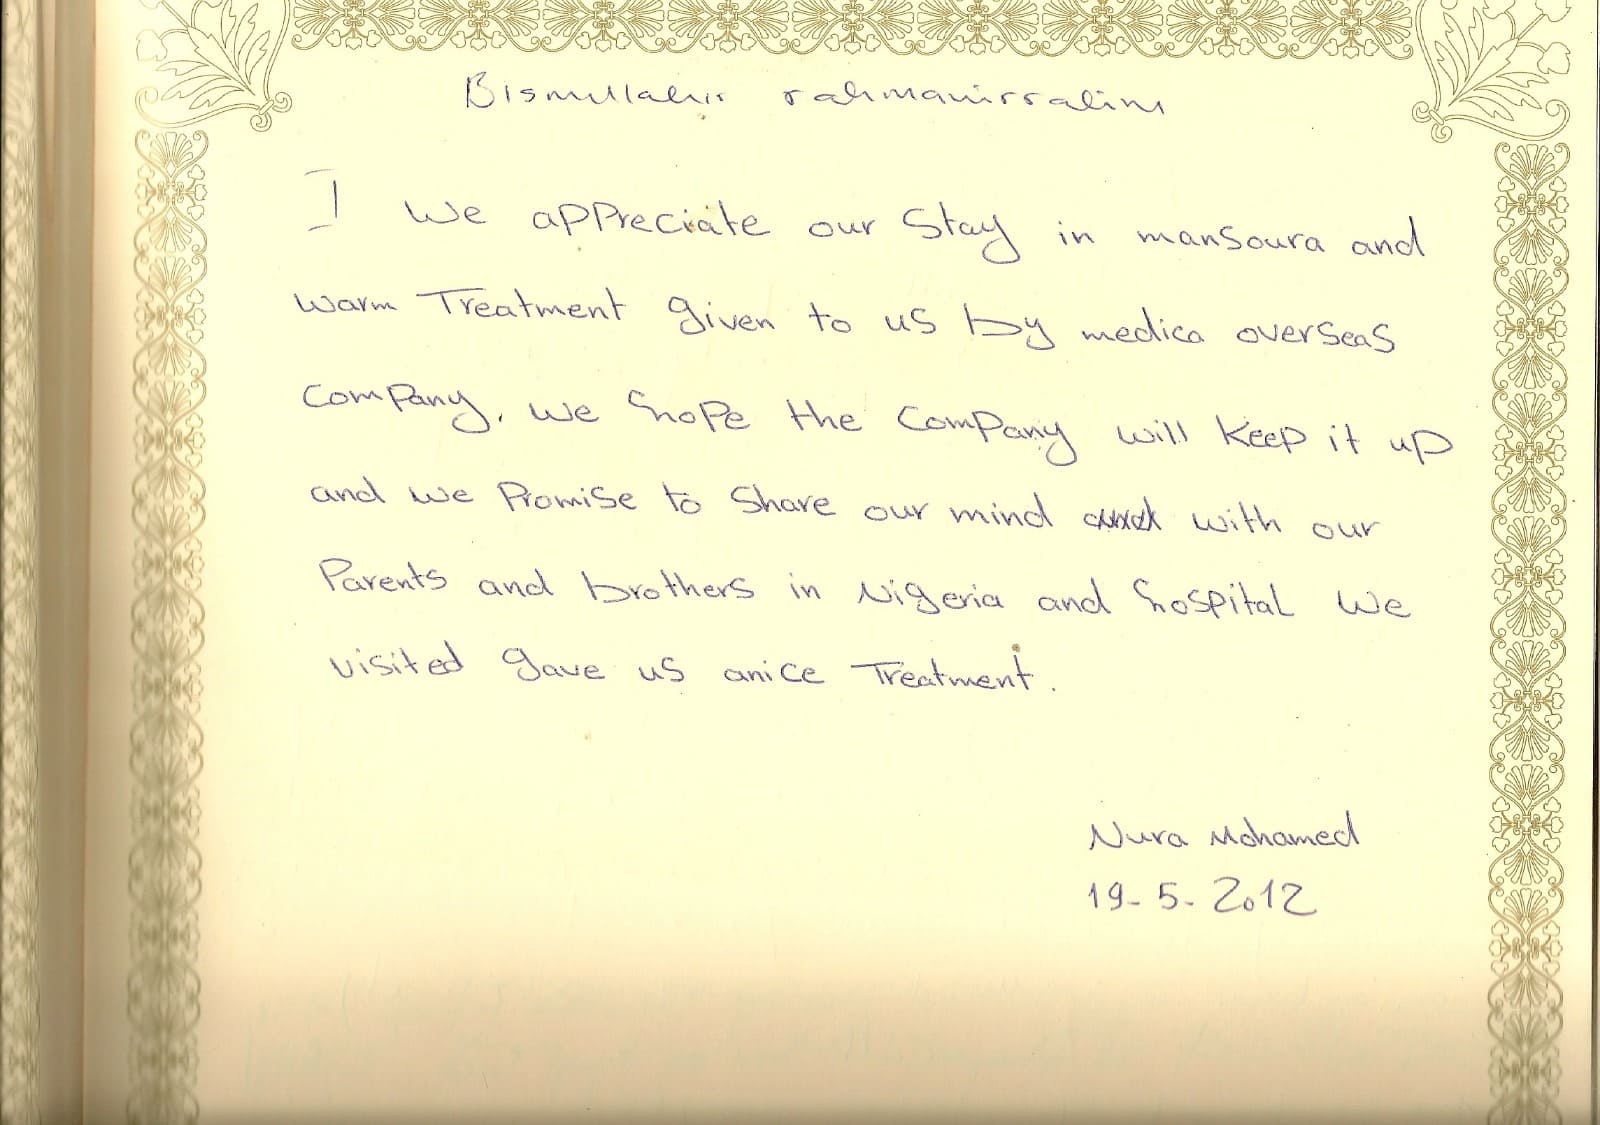 Bismillahir rahmanirrahim
I we appreciate our stay in mansoura and
warm Treatment given to us by medica overseas
Company. we hope the Company will keep it up
and we Promise to share our mind with our
Parents and brothers in Nigeria and hospital We
visited gave us anice Treatment.
Nura Mohamed
19-5-2012